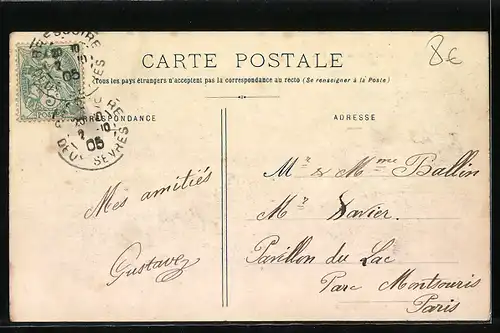 8€
CARTE POSTALE
Tous les pays étrangers n'acceptent pas la correspondance au recto (Se renseigner à la Poste)
CORRESPONDANCE
ADRESSE
BRESSUIRE
05
05
DEUX SEVRES
Mes amitiés
Gustave
Mr & Mme Ballin
Mr Xavier.
Pavillon du Lac
Parc Montsouris
Paris